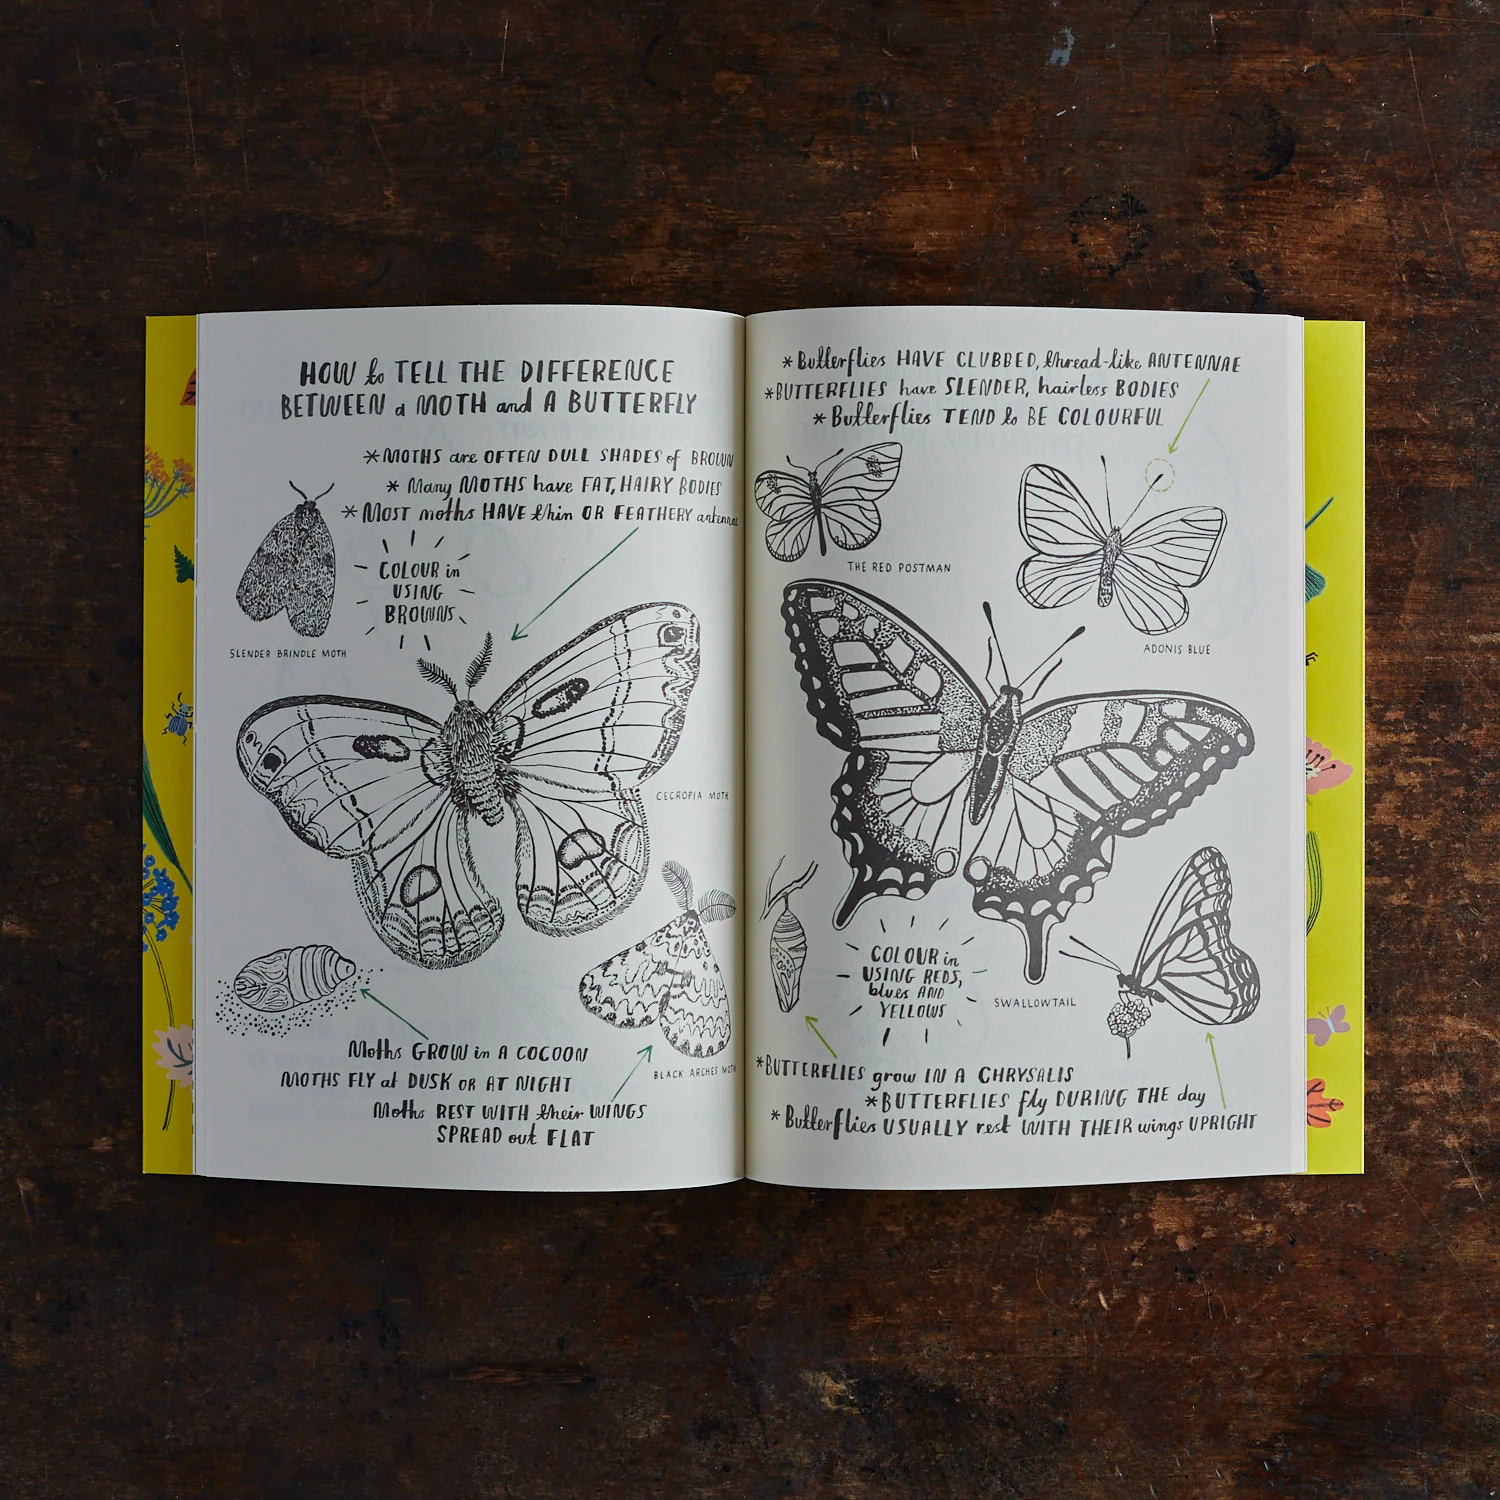 HOW to TELL THE DIFFERENCE
BETWEEN a MOTH and A BUTTERFLY
*MOTHS are OFTEN DULL SHADES of BROWN
* Many MOTHS have FAT, HAIRY BODIES
* MOST moths HAVE thin OR FEATHERY antennae
COLOUR in
USING
BROWNS
SLENDER BRINDLE MOTH
CECROPIA MOTH
BLACK ARCHES MOTH
Moths GROW in A COCOON
MOTHS FLY at DUSK OR AT NIGHT
Moths REST WITH their WINGS
SPREAD out FLAT
* Butterflies HAVE CLUBBED, thread-like ANTENNAE
*BUTTERFLIES have SLENDER, hairless BODIES
* Butterflies TEND to BE COLOURFUL
THE RED POSTMAN
ADONIS BLUE
COLOUR in
USING REDS,
blues AND
YELLOWS
SWALLOWTAIL
*BUTTERFLIES grow IN A CHRYSALIS
*BUTTERFLIES fly DURING THE day
* Butterflies USUALLY rest WITH THEIR wings UPRIGHT